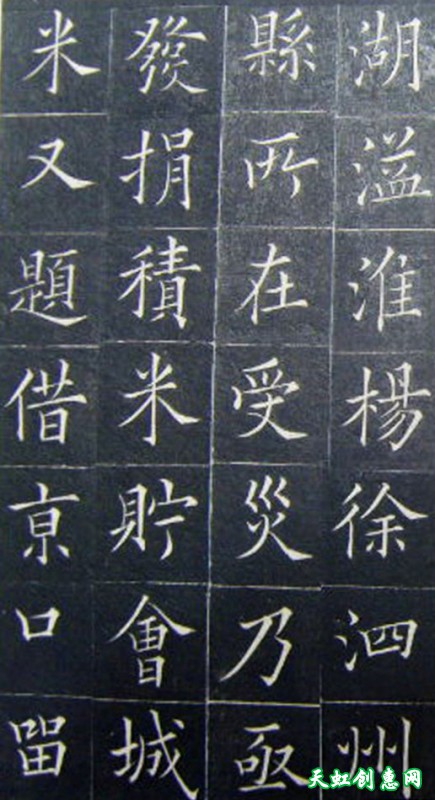 湖溢淮楊徐泗州
縣所在受災乃亟
發捐積米貯會城
米又題借京口留
天虹创惠网